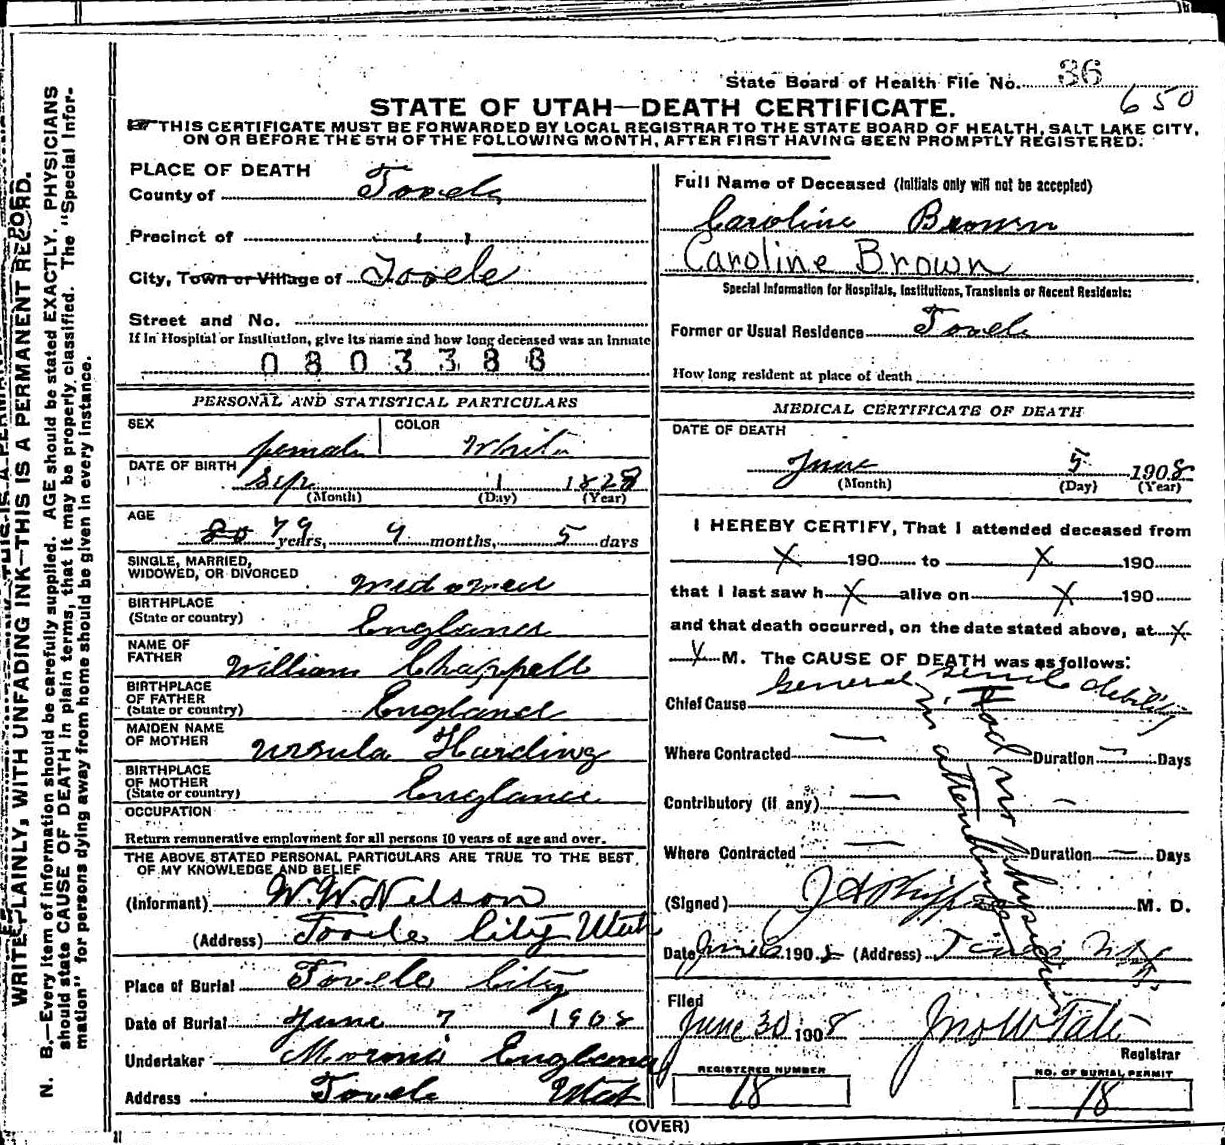 State Board of Health File No. 36
650
STATE OF UTAH—DEATH CERTIFICATE.
THIS CERTIFICATE MUST BE FORWARDED BY LOCAL REGISTRAR TO THE STATE BOARD OF HEALTH, SALT LAKE CITY,
ON OR BEFORE THE 5TH OF THE FOLLOWING MONTH, AFTER FIRST HAVING BEEN PROMPTLY REGISTERED.
WRITE PLAINLY, WITH UNFADING INK—THIS IS A PERMANENT RECORD.
N. B.—Every item of information should be carefully supplied. AGE should be stated EXACTLY. PHYSICIANS
should state CAUSE OF DEATH in plain terms, that it may be properly classified. The "Special Infor-
mation" for persons dying away from home should be given in every instance.
PLACE OF DEATH
County of Tooele
Precinct of
City, Town or Village of Tooele
Street and No.
If in Hospital or Institution, give its name and how long deceased was an inmate
0803388
PERSONAL AND STATISTICAL PARTICULARS
SEX female COLOR White
DATE OF BIRTH Sep 1 1828
(Month) (Day) (Year)
AGE 80 79 years, 9 months, 5 days
SINGLE, MARRIED,
WIDOWED, OR DIVORCED widowed
BIRTHPLACE
(State or country) England
NAME OF
FATHER William Chappell
BIRTHPLACE
OF FATHER
(State or country) England
MAIDEN NAME
OF MOTHER Ursula Harding
BIRTHPLACE
OF MOTHER
(State or country) England
OCCUPATION
Return remunerative employment for all persons 10 years of age and over.
THE ABOVE STATED PERSONAL PARTICULARS ARE TRUE TO THE BEST
OF MY KNOWLEDGE AND BELIEF
(Informant) W. W. Nelson
(Address) Tooele City Utah
Place of Burial Tooele City
Date of Burial June 7 1908
Undertaker Moroni England
Address Tooele Utah
Full Name of Deceased (Initials only will not be accepted)
Caroline Brown
Caroline Brown
Special Information for Hospitals, Institutions, Transients or Recent Residents:
Former or Usual Residence Tooele
How long resident at place of death
MEDICAL CERTIFICATE OF DEATH
DATE OF DEATH
June 5 1908
(Month) (Day) (Year)
I HEREBY CERTIFY, That I attended deceased from
X 190 to X 190
that I last saw h X alive on X 190
and that death occurred, on the date stated above, at X
X M. The CAUSE OF DEATH was as follows:
Chief Cause General Senile debility
Had no physician
in attendance
Where Contracted — Duration — Days
Contributory (if any) — —
Where Contracted — Duration — Days
(Signed) J A Phipps M. D.
Date June 6 1908 (Address) Tooele Utah
Filed
June 30 1908 Jno W Tate
Registrar
REGISTERED NUMBER
18
NO. OF BURIAL PERMIT
18
(OVER)